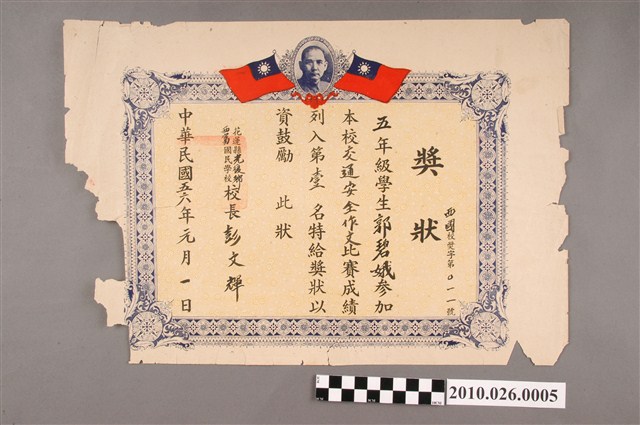 獎狀
西國校獎字第011號
五年級學生郭碧娥參加
本校交通安全作文比賽成績
列入第壹名特給獎狀以
資鼓勵 此狀
花蓮縣光復鄉
西富國民學校
校長彭文輝
中華民國五六年元月一日
2010.026.0005